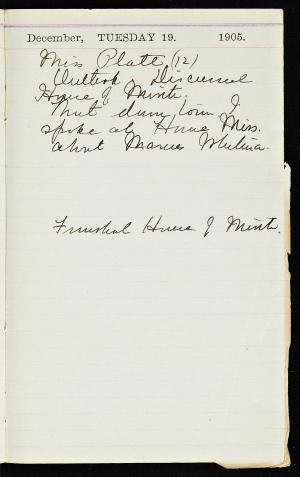 December, TUESDAY 19. 1905.
Miss Platt (12)
Outlook. Discussed
House of Mirth.
spoke at Home Miss.
about Marcus Whitman.
Finished House of Mirth.